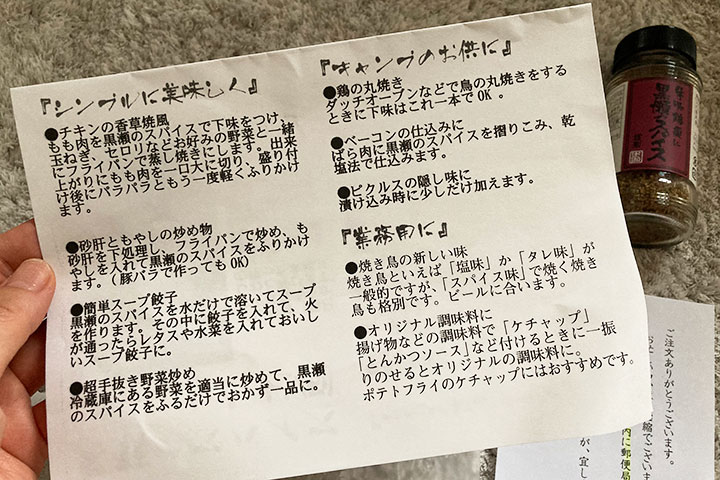 『シンプルに美味しく』
●チキンの香草焼風
もも肉を黒瀬のスパイスで下味をつけ、
玉ねぎ、セロリなどお好みの野菜と一緒
にフライパンで蒸し焼きにします。出来
上がりにもも肉を一口大に切り、盛り付
け後にパラパラともう一度軽くふりかけ
ます。
●砂肝ともやしの炒め物
砂肝を下処理し、フライパンで炒め、も
やしを入れて黒瀬のスパイスをふりかけ
ます。（豚バラで作ってもOK）
●簡単スープ餃子
黒瀬のスパイスを水だけで溶いてスープ
を作ります。その中に餃子を入れて、火
が通ったらレタスや水菜を入れておいし
いスープ餃子に。
●超手抜き野菜炒め
冷蔵庫にある野菜を適当に炒めて、黒瀬
のスパイスをふるだけでおかず一品に。
『キャンプのお供に』
●鶏の丸焼き
ダッチオーブンなどで鳥の丸焼きをする
ときに下味はこれ一本でOK。
●ベーコンの仕込みに
ばら肉に黒瀬のスパイスを摺りこみ、乾
塩法で仕込みます。
●ピクルスの隠し味に
漬け込み時に少しだけ加えます。
『業務用に』
●焼き鳥の新しい味
焼き鳥といえば「塩味」か「タレ味」が
一般的ですが、「スパイス味」で焼く焼き
鳥も格別です。ビールに合います。
●オリジナル調味料に
揚げ物などの調味料で「ケチャップ」
「とんかつソース」など付けるときに一振
りのせるとオリジナルの調味料に。
ポテトフライのケチャップにはおすすめです。
黒瀬のスパイス
ご注文ありがとうございます。
縮でございま
内に郵便局
が、宜し